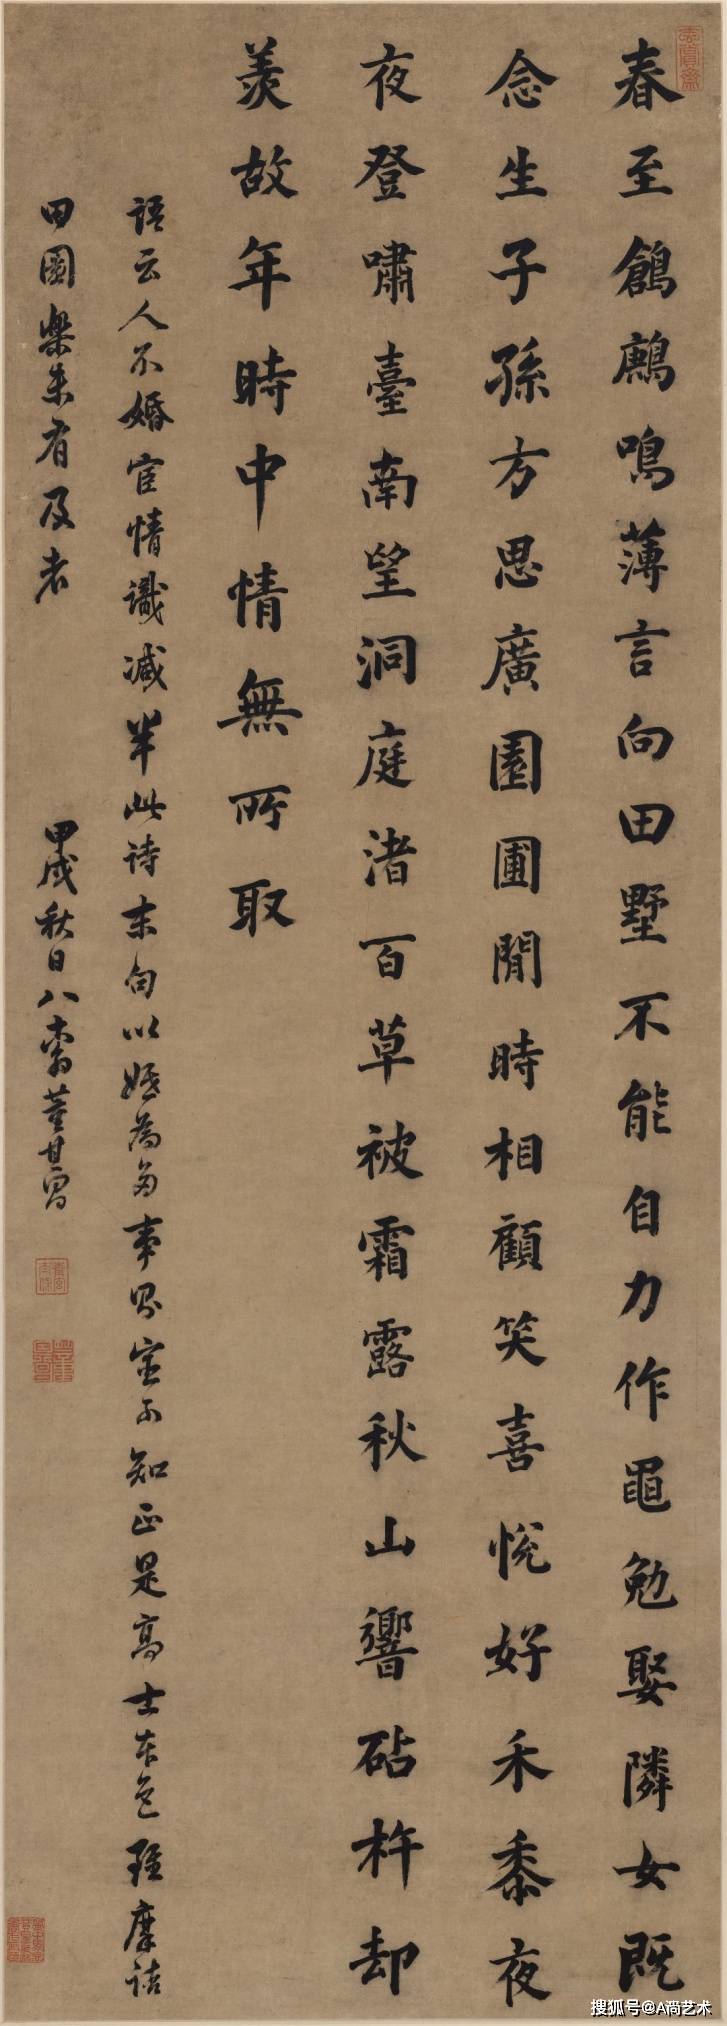 玄賞齋
春至鶬鶊鳴薄言向田墅不能自力作黽勉娶隣女既
念生子孫方思廣園圃閒時相顧笑喜悅好禾黍夜
夜登嘯臺南望洞庭渚百草被霜露秋山響砧杵却
羨故年時中情無所取
語云人不婚宦情識減半此詩末句以婚為多事不知正是高士本色雖摩詰
田園樂未有及者
甲戌秋日八十翁董其昌
搜狐号@A尚艺术